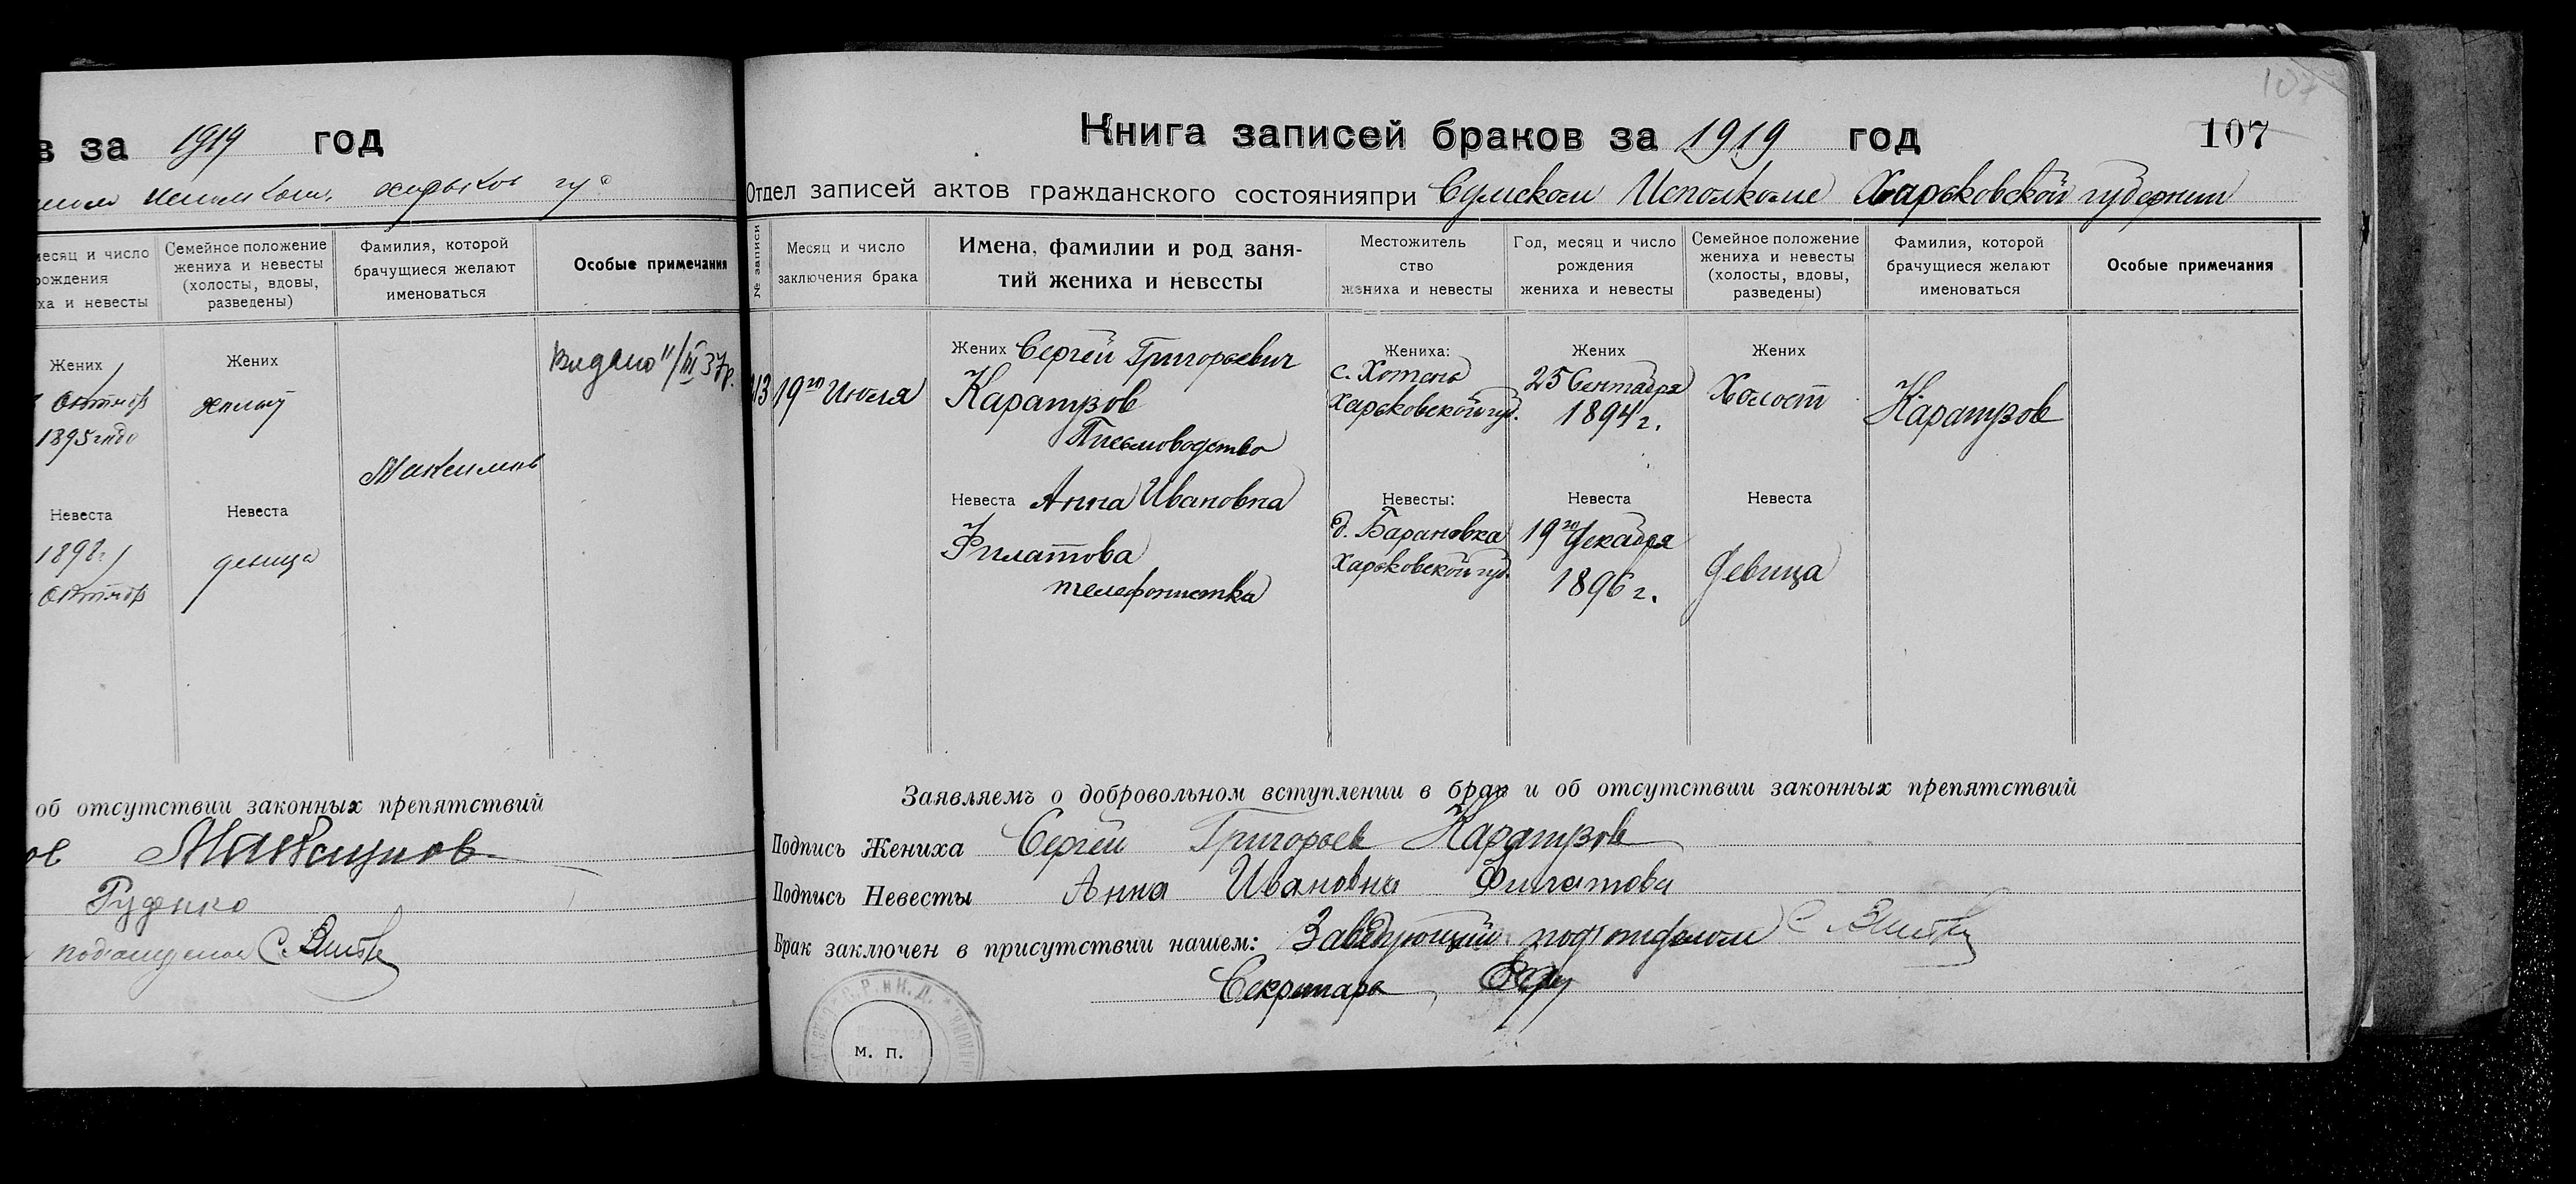 в за 1919 год
месяц и число
рождения
ха и невесты
Семейное положение
жениха и невесты
(холосты, вдовы,
разведены)
Фамилия, которой
брачущиеся желают
именоваться
Особые примечания
Жених
1895
Жених
Максимов
Невеста
1898
Невеста
девица
об отсутствии законных препятствий
Руденко
107
Книга записей браков за 1919 год
107
Отдел записей актов гражданского состоянияпри Сумском Исполкоме Харьковской губернии
№ записи
Месяц и число
заключения брака
Имена, фамилии и род заня-
тий жениха и невесты
Местожитель
ство
жениха и невесты
Год, месяц и число
рождения
жениха и невесты
Семейное положение
жениха и невесты
(холосты, вдовы,
разведены)
Фамилия, которой
брачущиеся желают
именоваться
Особые примечания
19го Июля
Жених Сергей Григорьевич
Каратузов
Письмоводство
Жениха:
с. Хотень
Харьковской губ.
Жених
25 Сентября
1894 г.
Жених
Холост
Каратузов
Невеста Анна Ивановна
Филатова
телефонистка
Невесты:
д. Барановка
Харьковской губ.
Невеста
19го Декабря
1896 г.
Невеста
Девица
Заявляемъ о добровольном вступлении в брак и об отсутствии законных препятствий
Подпись Жениха Сергей Григорьев Каратузов
Подпись Невесты Анна Ивановна Филатова
Брак заключен в присутствии нашем: Заведующий подотделом
Секретарь
м. п.